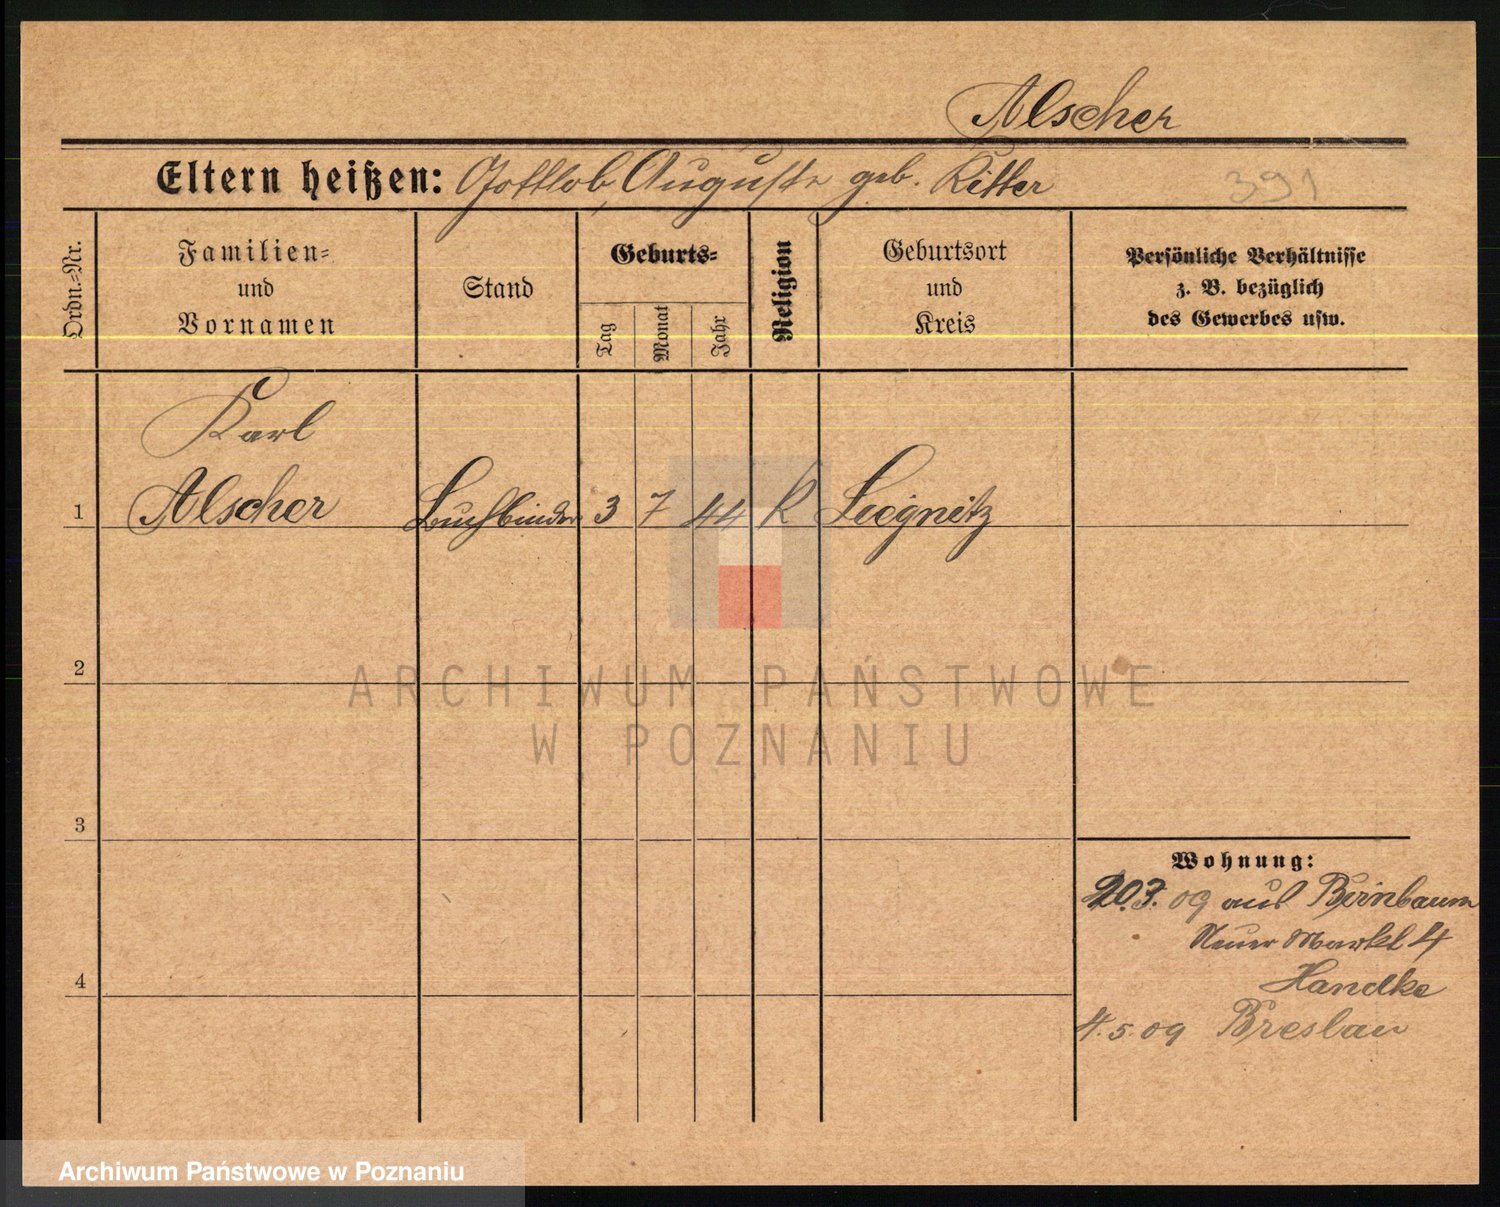 Alscher
Eltern heißen: Gottlob, Auguste geb. Ritter
391
Ordn.-Nr.
Familien-
und
Vornamen
Stand
Geburts-
Tag
Monat
Jahr
Religion
Geburtsort
und
Kreis
Persönliche Verhältnisse
z. B. bezüglich
des Gewerbes usw.
Karl
1 Alscher Buchbinder 3 7 44 K Liegnitz
2
3
4
Wohnung:
20.3. 09 aus Birnbaum
Neuer Markt 4
Handke
4.5.09 Breslau
ARCHIWUM PAŃSTWOWE
W POZNANIU
Archiwum Państwowe w Poznaniu